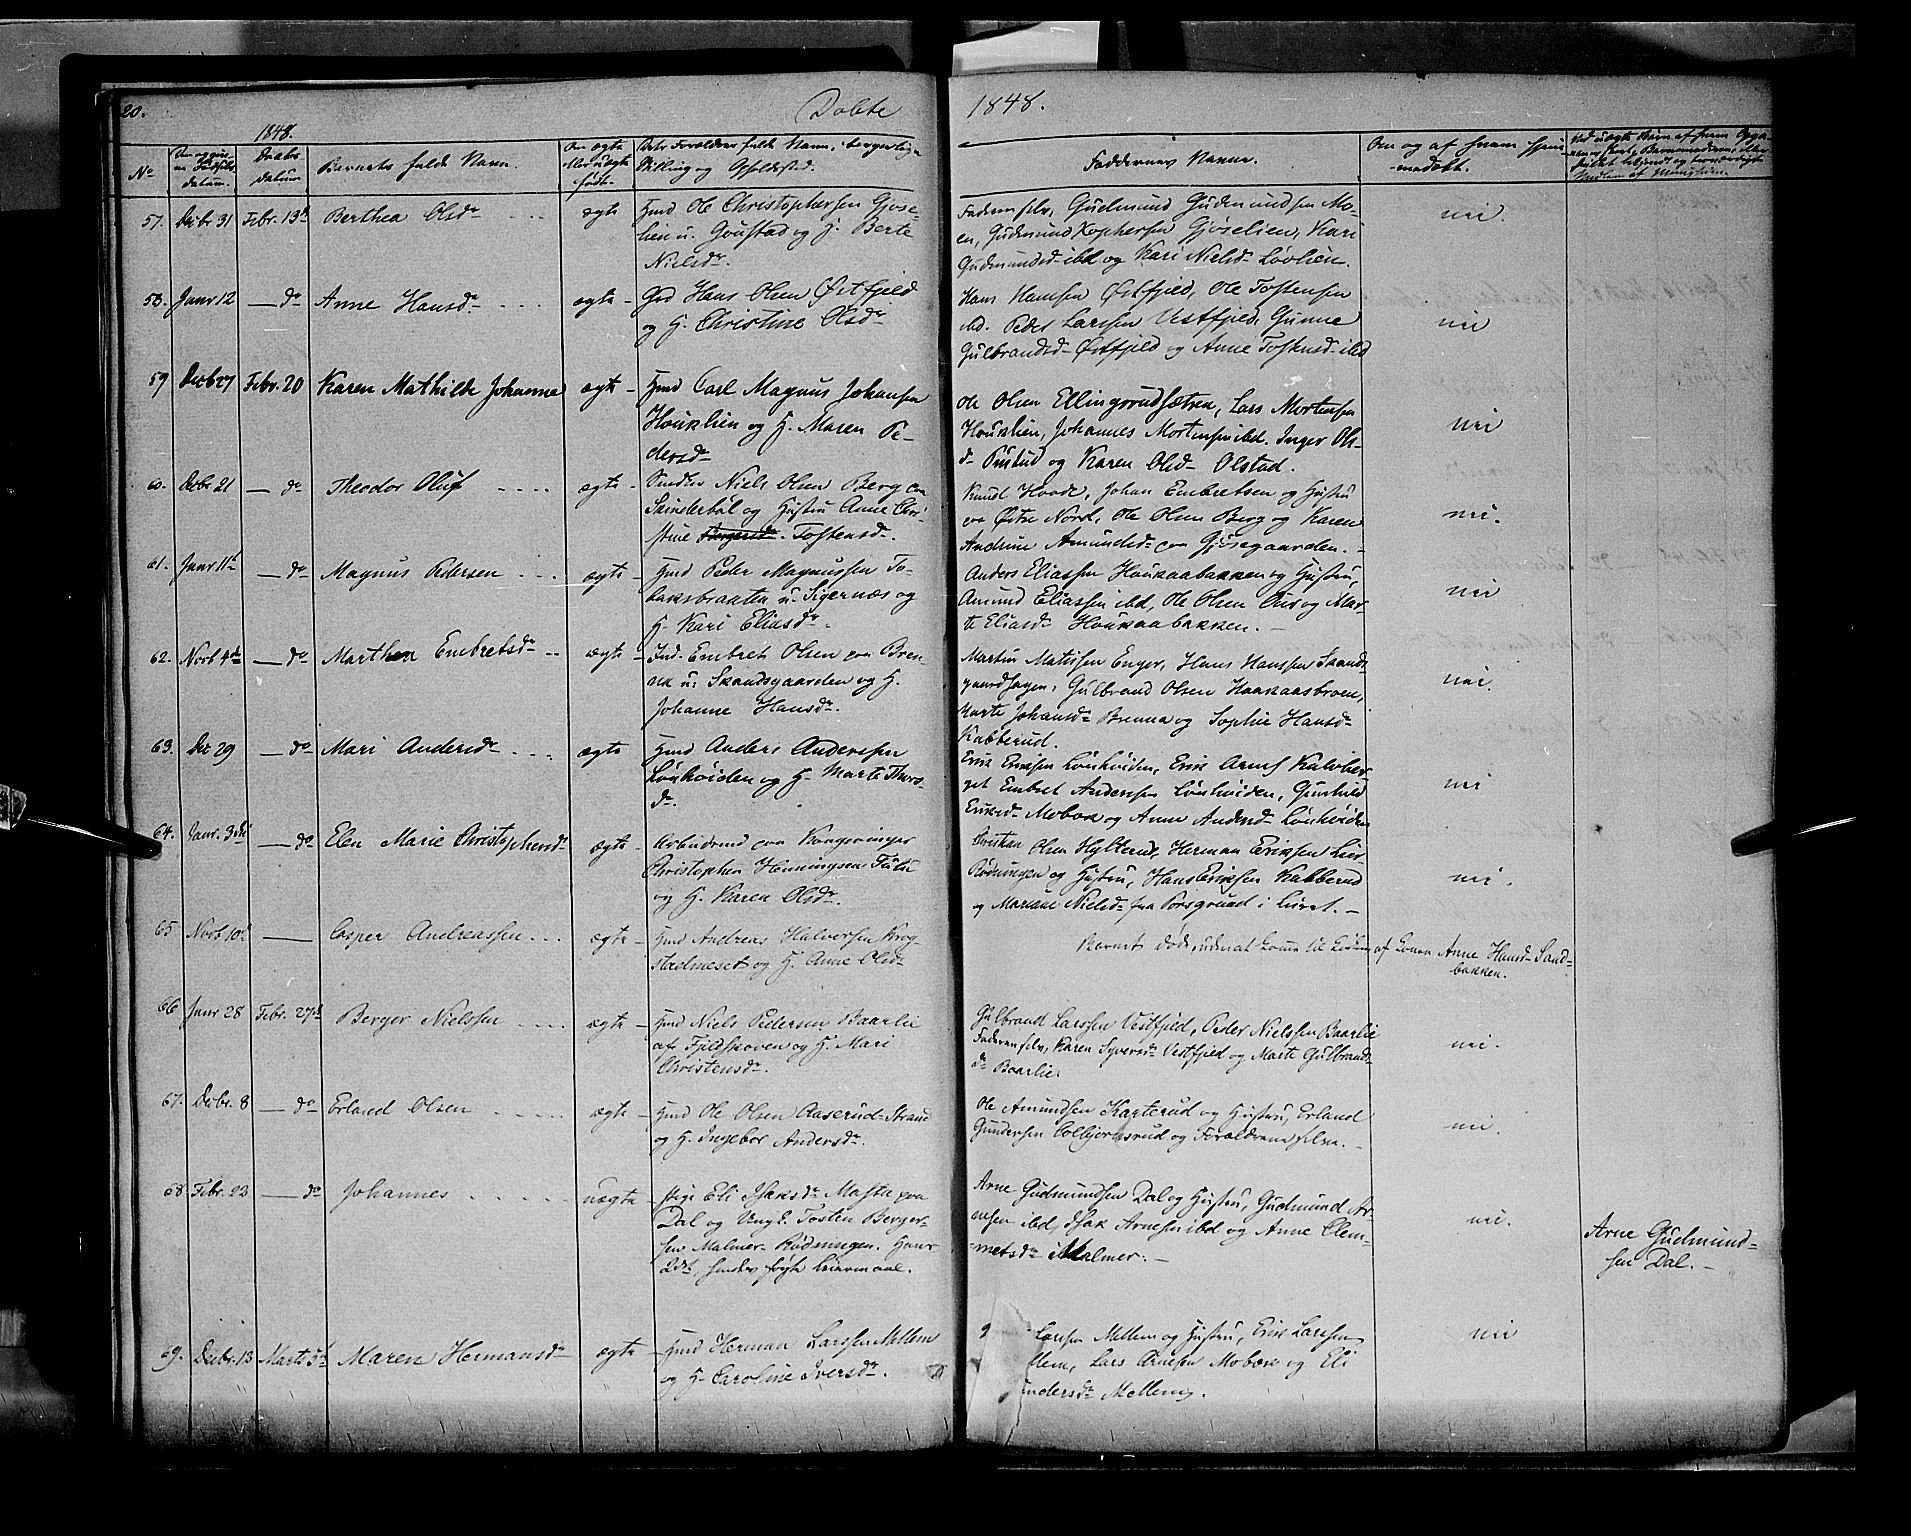 20. Døbte 1848.
1848.
No
Daabs datum.
Barnets fulde Navn.
Om ægte eller uægte født.
Dets Forældres fulde Navn, borgerlige Stilling og Opholdssted.
Faddernes Navne.
57. Debr 31 Febr. 13d Berthea Olsdr ægte Hmd Ole Christophersen Gjøse-
lien u. Goustad og H. Berte
Nielsdr.
Faderen selv, Gudmund Gudmundsen Mo-
en, Gudmund Xophersen Gjøselien, Kari
Gudmundsd ibd og Kari Nielsd Løvlien.
nei.
58. Janr 12 — do Anne Hansdr ægte Grd Hans Olsen Østfjeld
og H. Christine Olsdr
Hans Hansen Østfjeld, Ole Tostensen
ibd. Peder Larssen Vestfjed, Gunne
Gulbrandsd Østfjeld og Anne Tostensd ibd
nei
59 Decb 27 Febr. 20 Karen Mathilde Johanne ægte Hmd Carl Magnus Johansen
Houklien og H. Maren Pe-
dersdr
Ole Olsen Ellingsrudsætren, Lars Mortensen
Houklien, Johannes Mortensen ibd. Inger Ols-
d og Karen Olsd Olstad.
nei
60. Debr 21 — do Theodor Oluf ægte Niels Olsen Berg paa
Skinderbøl og Hustru Anne Chri-
stine Tostensdr
Knud Hovde, Johan Embretsen og Hustru
paa Østre Nord, Ole Olsen Berg og Karen
Andrine Amundsd paa Gjøsegaarden.
nei.
61. Janr 11d — do Magnus Pedersen ægte Hmd Peder Magnussen To-
baksbraaten u. Sigernæs og
H. Kari Eliasdr.
Anders Eliassen Houkaabakken og Hustru,
Amund Eliassen ibd, Ole Olsen og Mar-
te Eliasd Houkaabakken.
nei
62. Novb 4de — do Marthea Embretsdr ægte Ind. Embret Olsen paa Bren-
na u. Skandsgaarden og H.
Johanne Hansdr.
Martin Matissen Enger, Hans Hanssen Skands-
gaardhagen, Gulbrand Olsen Haakaasbroen,
Marte Johansd Brenna og Sophie Hansd
Kabberud.
nei.
63. Dec 29 — do Mari Andersdr ægte Hmd Anders Anderssen
Lønhøiden og H. Marte Thors-
d.
Erik Eriksen Lønhøiden, Erik Arnes Kalvber-
get Embret Anderssen Lønhøiden, Gunhild
Eriksd Mobæk og Anne Andersd Lønhøiden
nei
64. Janr. 3die — do Elen Marie Christophersdr ægte Arbeidsmd paa Kongsvinger
Christopher Henningsen
og H. Karen Olsdr.
Christian Olsen Hylterud, Herman Eriksen Lier-
Rødningen og Hustru, Hans Eriksen Kabberud
og Mariane Nielsd fra Porsgrund i Lieret.
nei.
65 Novb 10d — Casper Andreassen ægte Hmd Andreas Halvorsen Krog-
stadneset og H. Anne Olsdr
Barnets Død uden at komme til Kirken af Konen Anne Hansd Sand-
bakken.
66 Janr 28 Febr. 27d Berger Nielssen ægte Hmd Niels Pedersen Baarlie
af Fjeldskoven og H. Mari
Christensdr.
Gulbrand Larssen Vestfjed, Peder Nielssen Baarlie
Faderen selv, Karen Syversdr Vestfjed og Marte Gulbrands-
dr Baarlie.
nei.
67. Debr. 8 — do Erland Olsen ægte Hmd Ole Olsen Aaserud-Strand
og H. Ingebor Andersdr.
Ole Amundsen Karterud og Hustru, Erland
Gundersen Colbjørnsrud og Forældrene selve.
nei.
68. Febr. 23 — do Johannes uægte Pige Eli Isaksdr paa
Dal og Ungk. Tosten Berger-
sen Malmer-Rødningen. Hans
2det, hendes første Leiermaal.
Arne Gudmundsen Dal og Hustru, Gudmund Ar-
nesen ibd, Isak Arnesen ibd og Anne Clem-
metsdr i Malmer.
nei.
Arne Gudmund-
sen Dal.
69. Debr. 13 Marts 5d Maren Hermansdr ægte Hmd Herman Larssen Mellem
og H. Caroline Iversdr.
Larssen Mellem og Hustru, Erik Larssen
Mellem, Lars Arnesen Mobæk og Eli
Andersdr Mellem.
nei